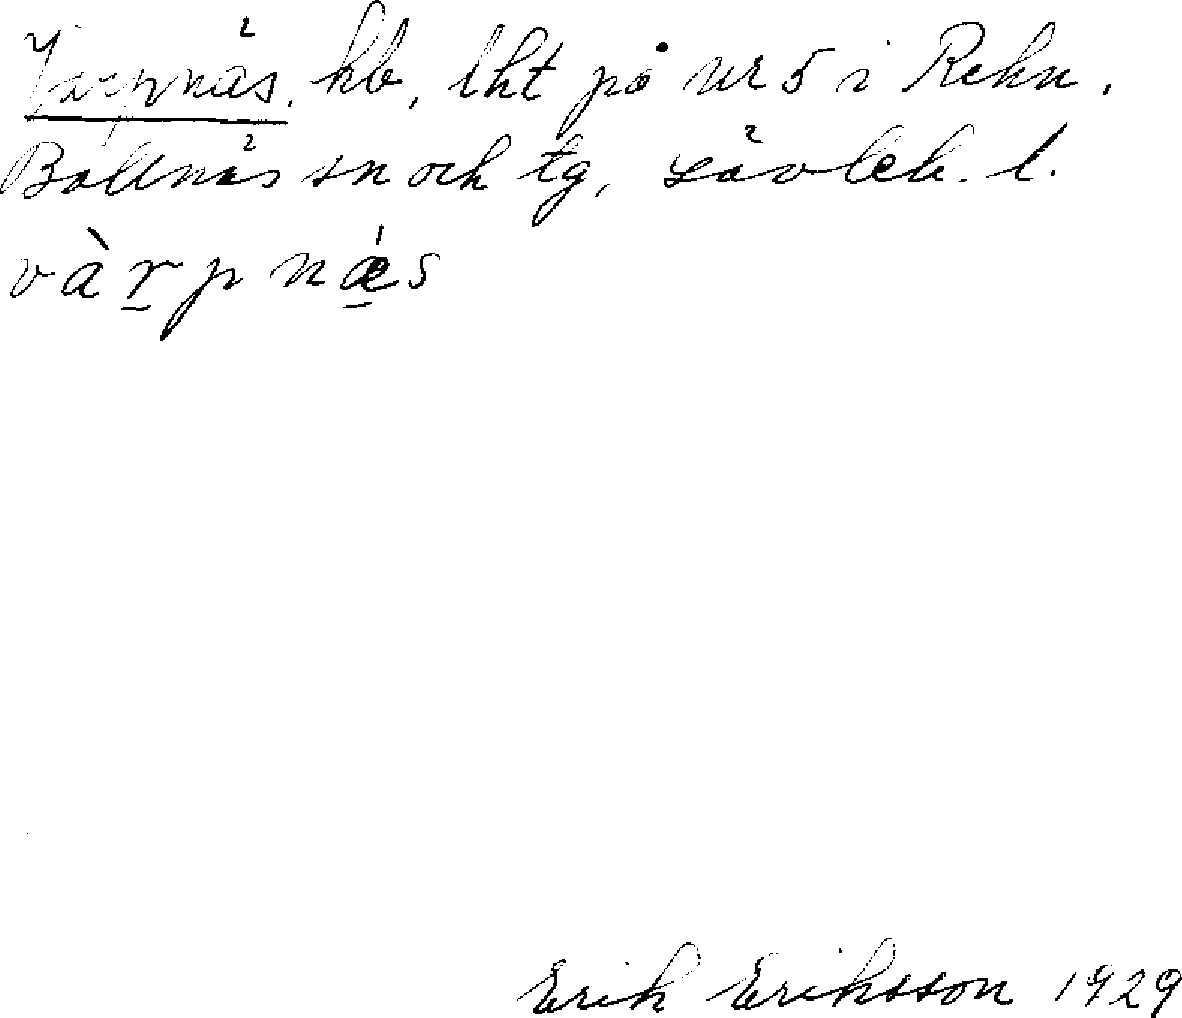 Varpnäs, hb, lht på nr 5 i Rehn.
Bollnäs sn och tg, Gävleb. l.
và r p n ǽ s
Erik Eriksson 1929